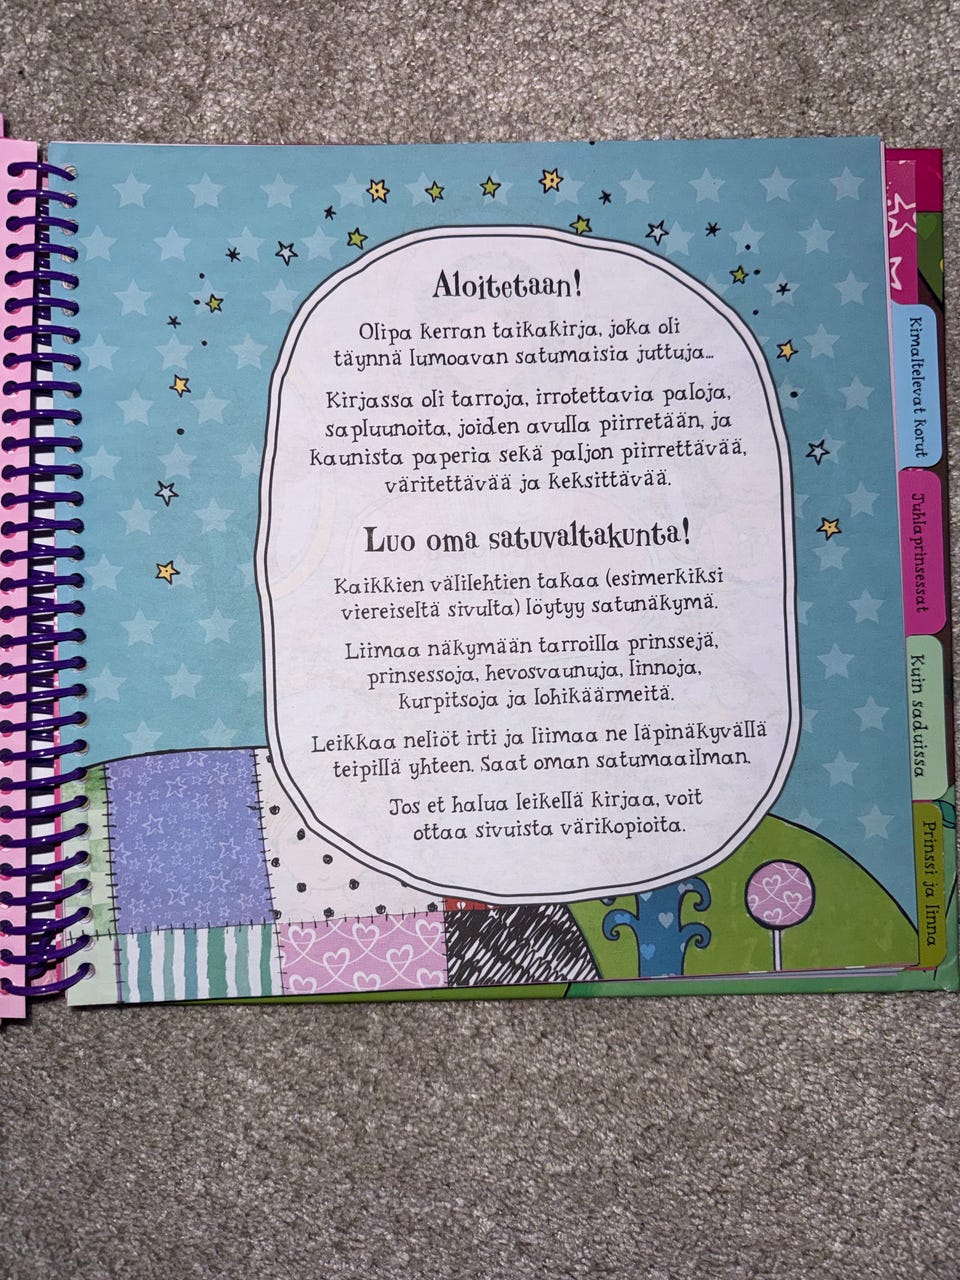 Aloitetaan!
Olipa kerran taikakirja, joka oli
täynnä lumoavan satumaisia juttuja...
Kirjassa oli tarroja, irrotettavia paloja,
sapluunoita, joiden avulla piirretään, ja
kaunista paperia sekä paljon piirrettävää,
väritettävää ja keksittävää.
Luo oma satuvaltakunta!
Kaikkien välilehtien takaa (esimerkiksi
viereiseltä sivulta) löytyy satunäkymä.
Liimaa näkymään tarroilla prinssejä,
prinsessoja, hevosvaunuja, linnoja,
kurpitsoja ja lohikäärmeitä.
Leikkaa neliöt irti ja liimaa ne läpinäkyvällä
teipillä yhteen. Saat oman satumaailman.
Jos et halua leikellä kirjaa, voit
ottaa sivuista värikopioita.
Kimaltelevat korut
Juhlaprinsessat
Kuin saduissa
Prinssi ja linna